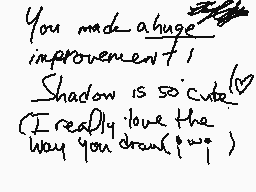 You made a huge
improvement!
Shadow is so cute!♡
(I really love the
way you draw(;w;)